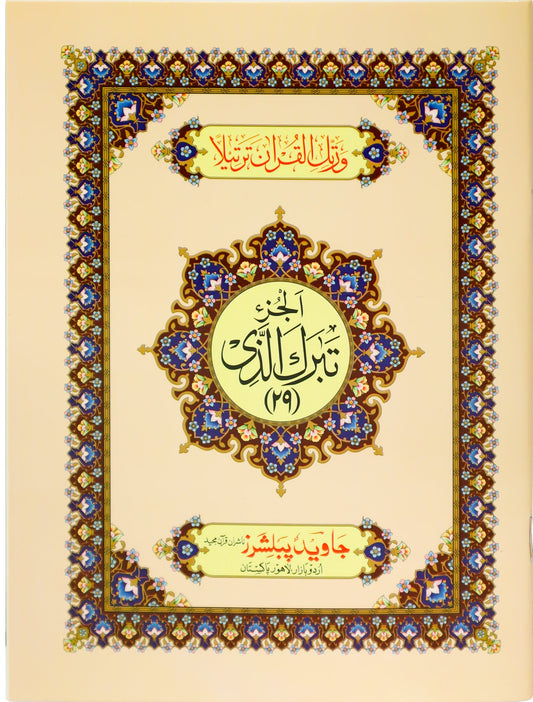 ورتل القرآن ترتیلا
الجزء
تبرك الذی
(۲۹)
جاوید پبلشرز ناشران قرآن مجید
اردو بازار لاھور پاکستان